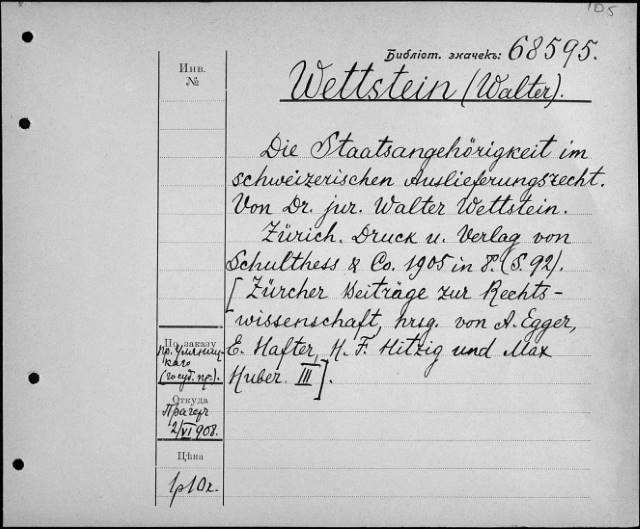 105
Библіот. значекъ: 68595.
Инв.
№
Wettstein (Walter).
Die Staatsangehörigkeit im
schweizerischen Auslieferungsrecht.
Von Dr. jur. Walter Wettstein.
Zürich. Druck u. Verlag von
Schulthess & Co. 1905 in 8º. (S. 92).
[Zürcher Beiträge zur Rechts-
wissenschaft, hrsg. von A. Egger,
E. Hafter, H. F. Hitzig und Max
Huber. III].
По заказу
пр.
каго
(госуд. пр.).
Откуда
Прагеръ
2/VI 908.
Цѣна
1р10к.